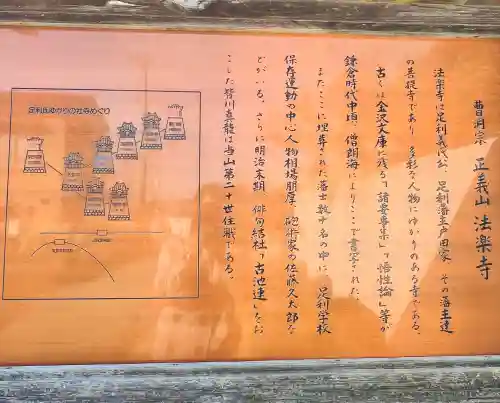 曹洞宗 正義山 法楽寺
法楽寺は足利義氏公、足利藩主戸田家、その藩主達
の菩提寺であり、多彩な人物にゆかりのある寺である。
古くは金沢文庫に残る「諸要専集」、「悟性論」等が
鎌倉時代中頃、僧朗海によりここで書写された。
またここに埋葬された藩士数十名の中に、足利学校
保存運動の中心人物相場朋厚、砲術家の佐藤久太郎な
どがいる。さらに明治末期、俳句結社「古池連」をお
こした皆川真龍は当山第二十世住職である。
足利氏ゆかりの社寺めぐり